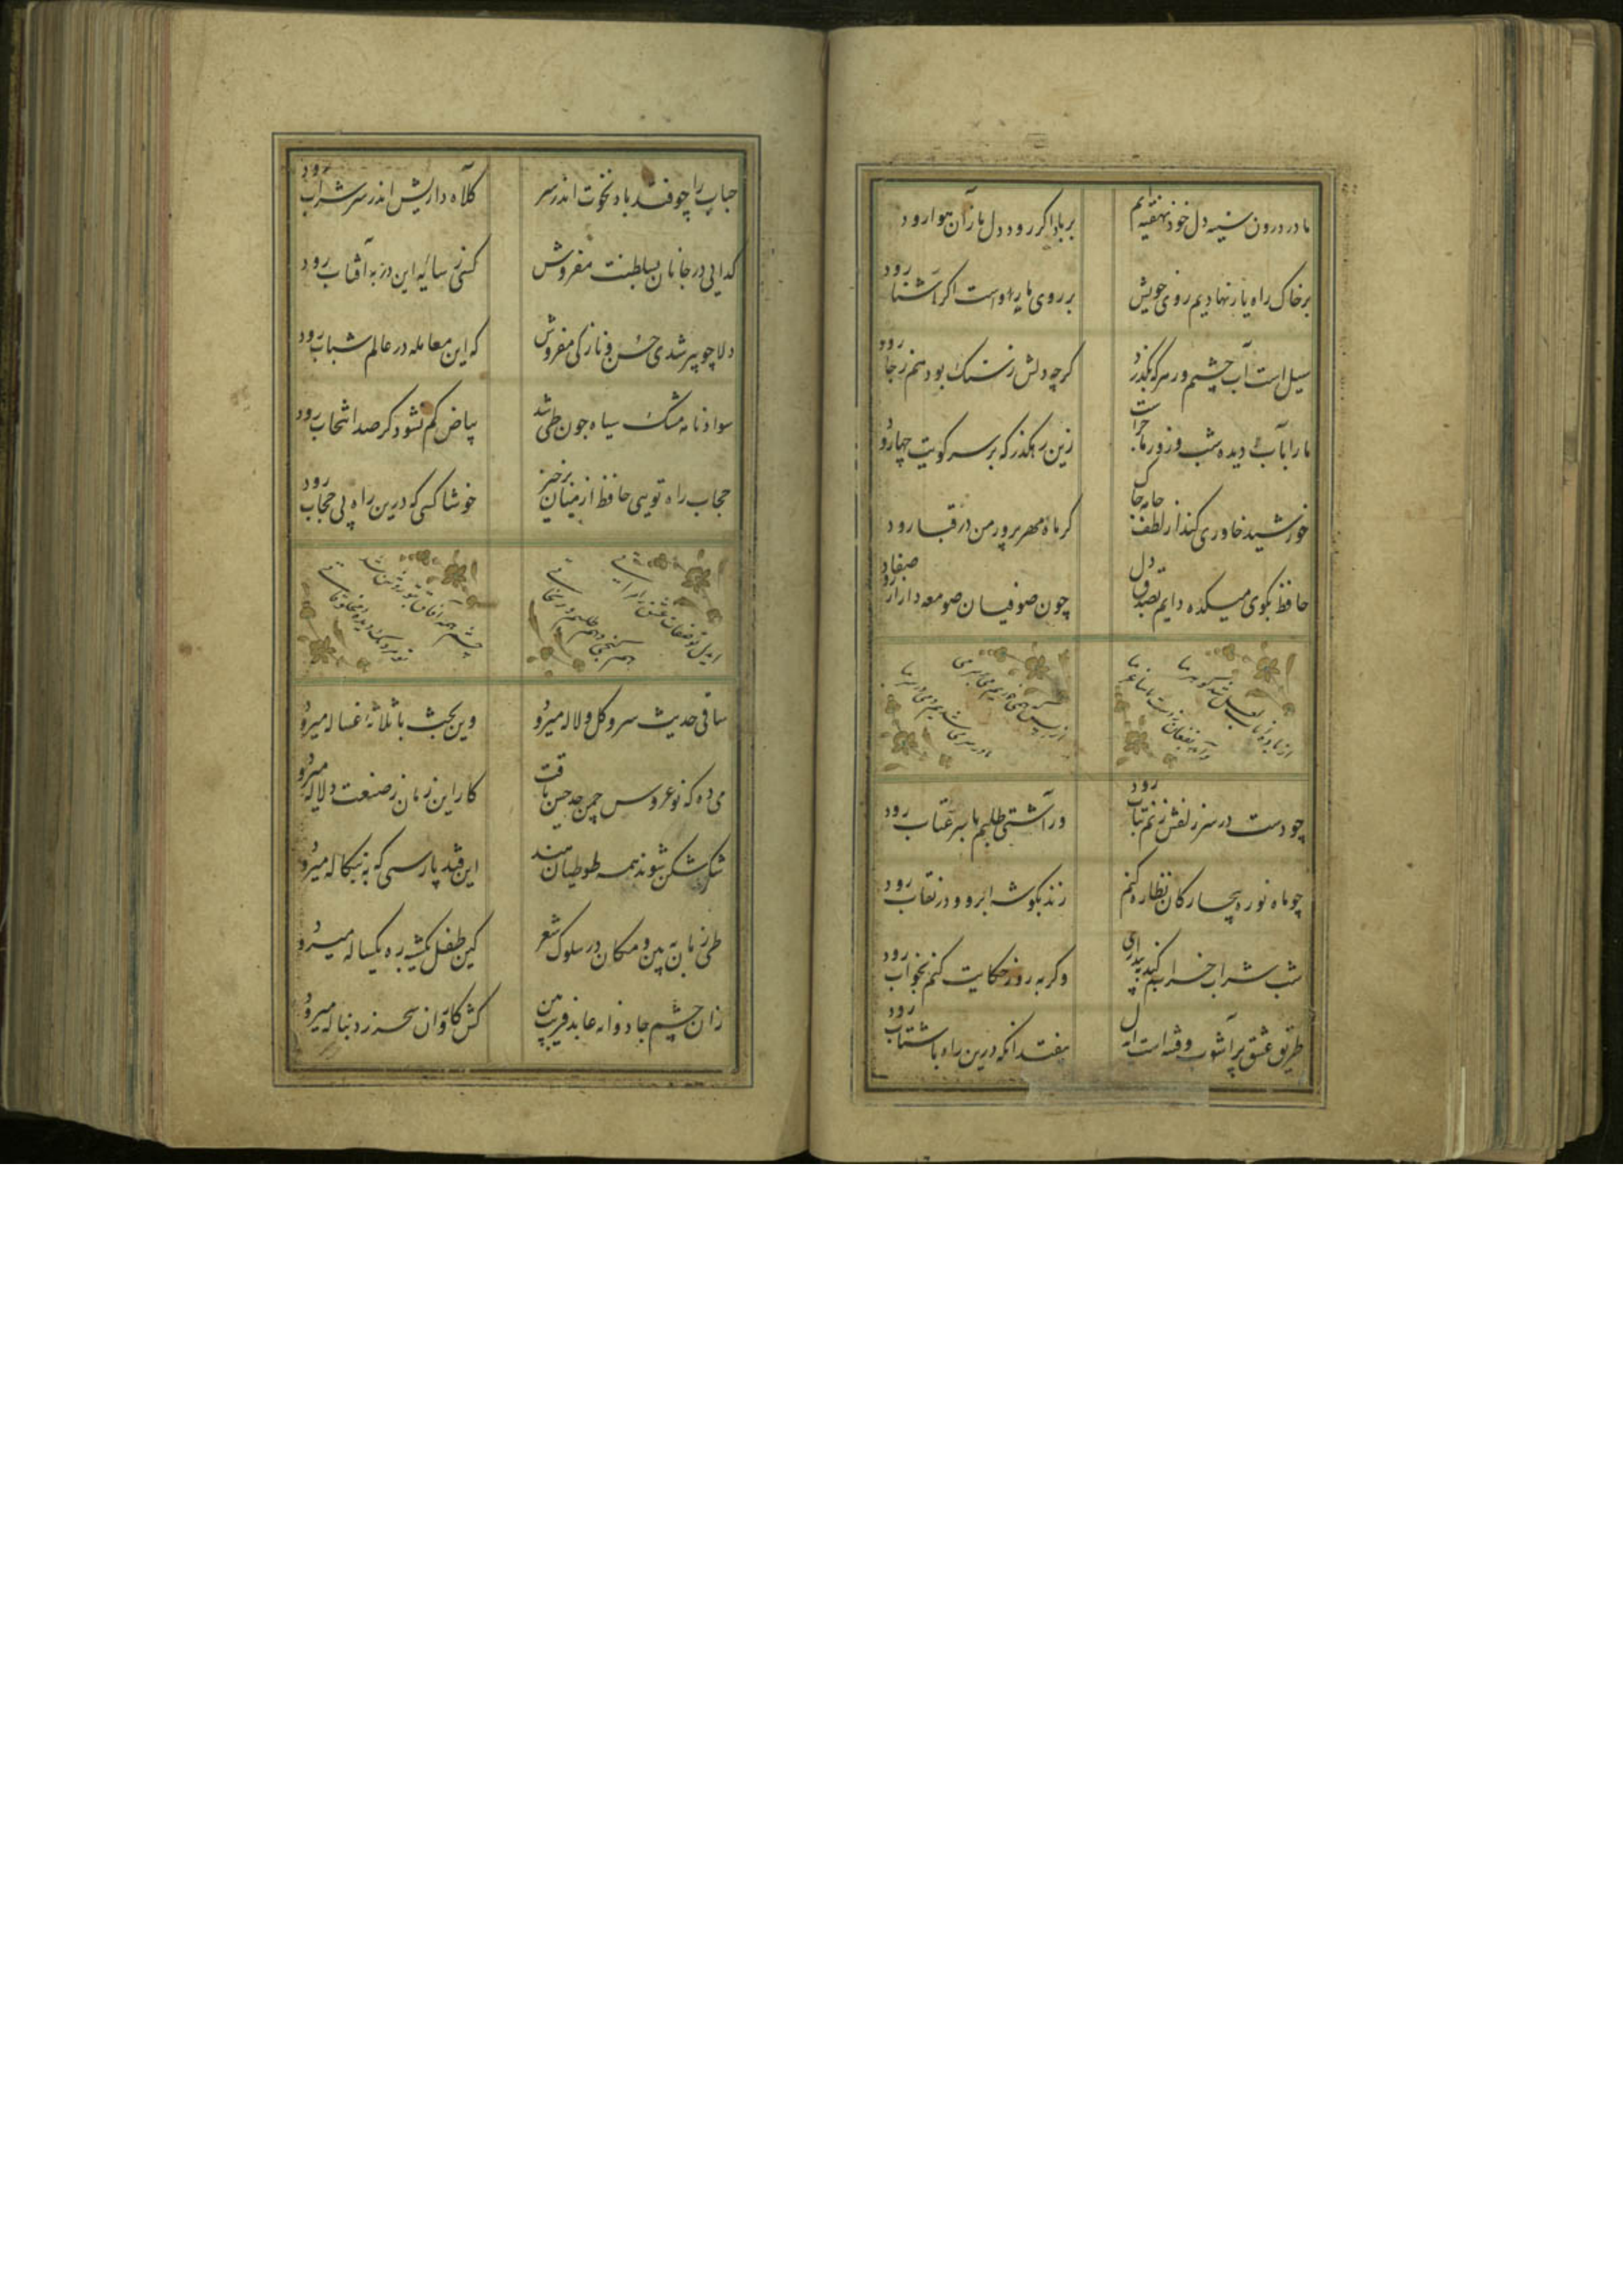 ما در درون سینه دل خود نهفته‌ایم
بر باد اگر رود دل ما زان هوا رود
بر خاک راه یار نهادیم روی خویش
بر روی ما رواست اگر آشنا رود
سیل است آب چشم و بر هر که بگذرد
گرچه دلش ز سنگ بود هم ز جا رود
ما را بآب دیده شب و روز ماجراست
زین رهگذر که بر سر کویت چرا رود
خورشید خاوری کند از لطف جامه چاک
گر ماه مهرپرور من در قبا رود
حافظ بکوی میکده دایم بصدق دل
چون صوفیان صومعه‌دار از صفا رود
چو دست در سر زلفش زنم بتاب رود
ور آشتی طلبم با سر عتاب رود
چو ماه نو ره بیچارگان نظاره کنم
زند بگوشه ابرو و در نقاب رود
شب شراب خرابم کند به بیداری
وگر به روز حکایت کنم بخواب رود
طریق عشق پرآشوب و فتنه است ای دل
بیفتد آنکه درین راه با شتاب رود
حباب را چو فتد باد نخوت اندر سر
کلاه داریش اندر سر شراب رود
گدایی در جانان بسلطنت مفروش
کسی ز سایه این در به آفتاب رود
دلا چو پیر شدی حسن و نازکی مفروش
که این معامله در عالم شباب رود
سواد نامه مشک سیاه چون طی شد
بیاض کم نشود گر صد انتخاب رود
حجاب راه تویی حافظ از میان برخیز
خوشا کسی که درین راه بی حجاب رود
ساقی حدیث سرو و گل و لاله میرود
وین بحث با ثلاثه غساله میرود
می ده که نوعروس چمن حد حسن یافت
کار این زمان ز صنعت دلاله میرود
شکرشکن شوند همه طوطیان هند
این قند پارسی که به بنگاله میرود
طی زمان ببین و مکان در سلوک شعر
کین طفل یکشبه ره یکساله میرود
زان چشم جادوانه عابدفریب بین
کش کاروان سحر ز دنباله میرود